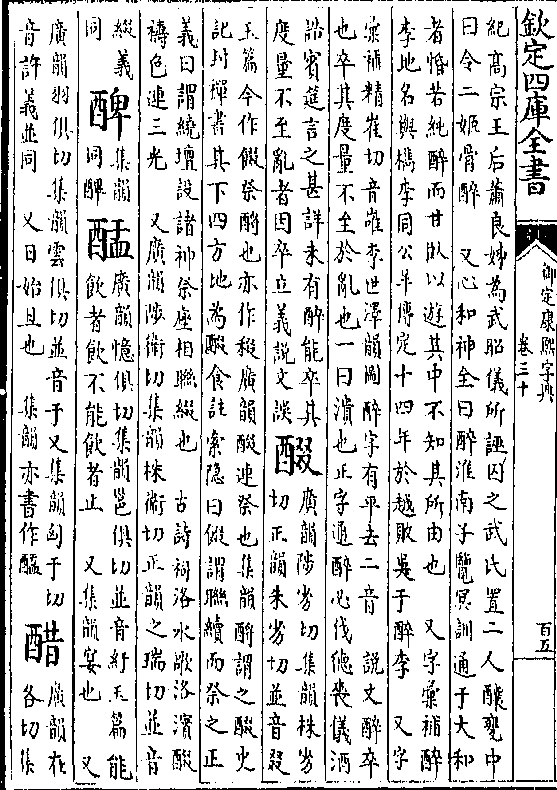 欽定四庫全書
御定康熙字典
卷三十
百五
紀高宗王后蕭良娣為武昭儀所誣囚之武氏置二人釀甕中
曰令二嫗骨醉 又心和神全曰醉淮南子覽冥訓通于大和
者惛若純醉而甘臥以遊其中不知其所由也 又字彙補醉
李地名與檇李同公羊傳定十四年於越敗吳于醉李 又字
彙補精崔切音嶉李世澤韻圖醉字有平去二音 說文醉卒
也卒其度量不至於亂也一曰潰也正字通醉必伐德喪儀酒
誥賓筵言之甚詳未有醉能卒其
度量不至亂者因卒立義說文誤
醊
廣韻陟劣切集韻株劣
切正韻朱劣切並音叕
玉篇今作餟祭酹也亦作裰廣韻醊連祭也集韻酹謂之醊史
記封禪書其下四方地為醊食註索隱曰餟謂聯續而祭之正
義曰謂繞壇設諸神祭座相聯綴也 古詩祠洛水歌洛濱醊
禱色連三光 又廣韻陟衛切集韻株衛切正韻之瑞切並音
綴義
同
集韻
同
廣韻憶俱切集韻邕俱切並音紆玉篇能
飲者飲不能飲者止 又集韻宴也 又
廣韻羽俱切集韻雲俱切並音于又集韻匈于切
音訏義並同 又日始旦也 集韻亦書作
醋
廣韻在
各切集